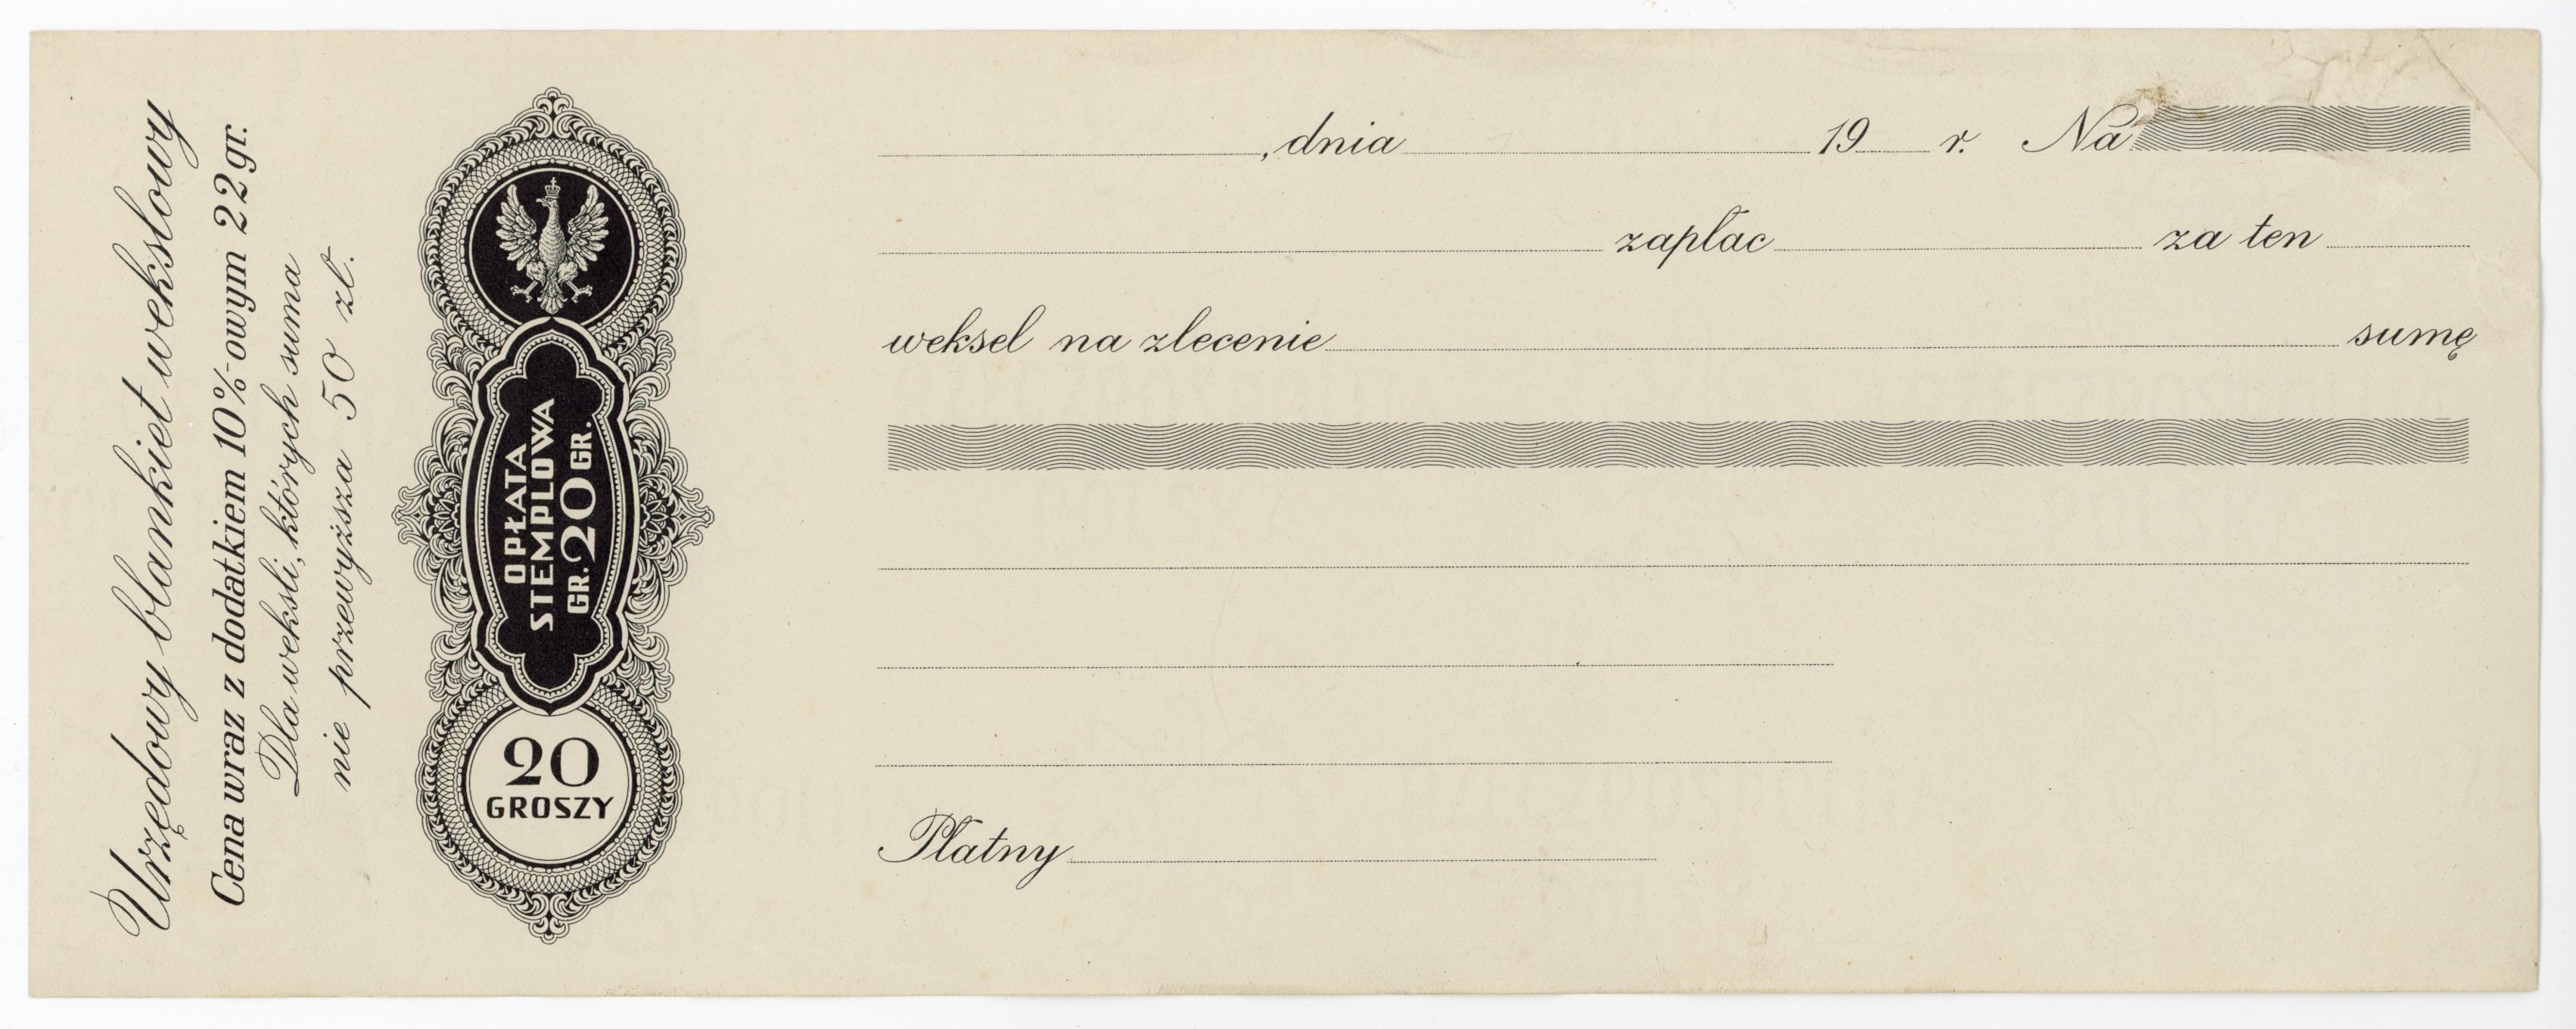 Urzędowy blankiet wekslowy
Cena wraz z dodatkiem 10%-owym 22 gr.
Dla weksli, których suma
nie przewyższa 50 zł.
OPŁATA
STEMPLOWA
GR. 20 GR.
20
GROSZY
, dnia 19 r. Na
zapłac za ten
weksel na zlecenie sumę
Płatny